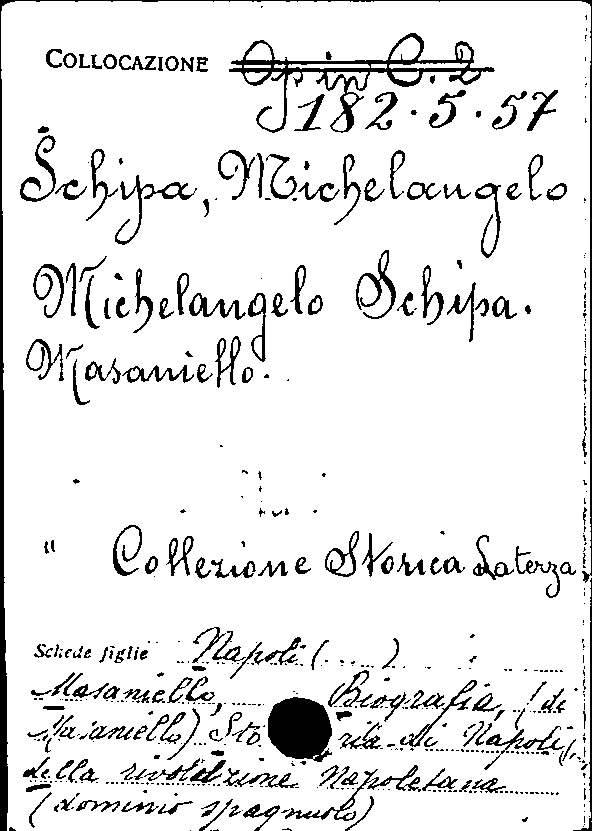 COLLOCAZIONE Op in C. 2
182.5.57
Schipa, Michelangelo
Michelangelo Schipa.
Masaniello.
" Collezione Storica Laterza
Schede figlie Napoli (....)
Masaniello, Biografia, (di
Masaniello) Storia di Napoli (..
della rivoluzione Napoletana
(dominio spagnuolo)